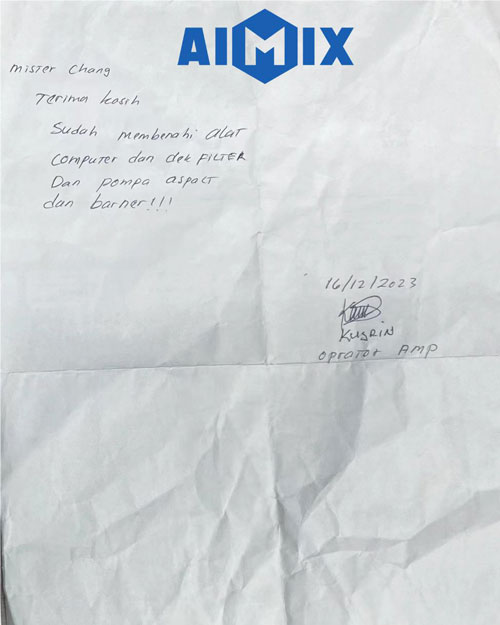 AIMIX
Mister Chang
Terima kasih
Sudah membenahi alat
Computer dan dek FILTER
Dan pompa aspalt
dan barner!!!
16/12/2023
KUSRIN
Oprator AMP